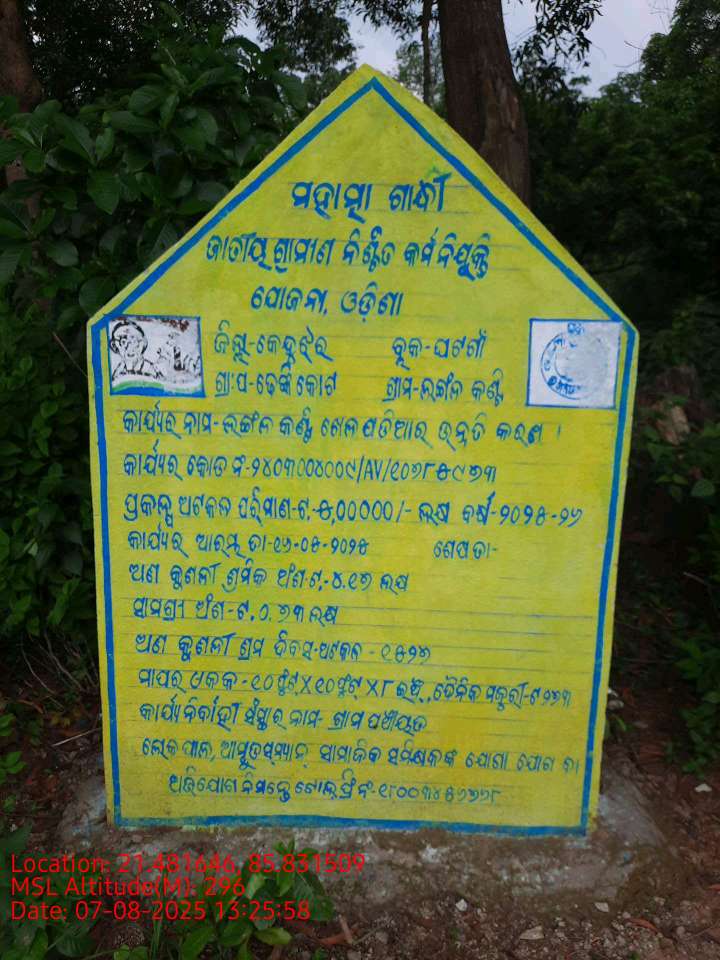 ମହାତ୍ମା ଗାନ୍ଧୀ
ଜାତୀୟ ଗ୍ରାମୀଣ ନିଶ୍ଚିତ କର୍ମ ନିଯୁକ୍ତି
ଯୋଜନା, ଓଡ଼ିଶା
ଜିଲ୍ଲା-କେନ୍ଦୁଝର ବ୍ଲକ-ଘଟଗାଁ
ଗ୍ରା:ପ-ଢେଙ୍କିକୋଟ ଗ୍ରାମ-ଲଙ୍ଗଳ କଣ୍ଟି
କାର୍ଯ୍ୟର ନାମ-ଲଙ୍ଗଳ କଣ୍ଟି ଖେଳପଡିଆର ଉନ୍ନତି କରଣ ।
କାର୍ଯ୍ୟର କୋଡ ନଂ-୨୪୦୩୦୦୪୦୦୯/AV/୧୦୬୮୫୯୭୩
ପ୍ରକଳ୍ପ ଅଟକଳ ପରିମାଣ-ଟ.-୫,୦୦୦୦୦/- ଲକ୍ଷ ବର୍ଷ-୨୦୨୫-୨୬
କାର୍ଯ୍ୟର ଆରମ୍ଭ ତା-୧୬-୦୫-୨୦୨୫ ଶେଷ ତା-
ଅଣ କୁଶଳୀ ଶ୍ରମିକ ଅଂଶ-ଟ.-୪.୧୭ ଲକ୍ଷ
ସାମଗ୍ରୀ ଅଂଶ-ଟ.୦.୭୩ ଲକ୍ଷ
ଅଣ କୁଶଳୀ ଶ୍ରମ ଦିବସ-ଅଟକଳ - ୧୫୨୭
ମାପର ଏକକ -୧୦ଫୁଟ୍ X ୧୦ଫୁଟ୍ X ୮ ଇଞ୍ଚ, ଦୈନିକ ମଜୁରୀ-ଟ ୨୭୩
କାର୍ଯ୍ୟ ନିର୍ବାହୀ ସଂସ୍ଥାର ନାମ- ଗ୍ରାମ ପଞ୍ଚାୟତ
ଲୋକପାଳ, ସାମାଜିକ ସମିକ୍ଷକଙ୍କ ଯୋଗା ଯୋଗ
ଅଭିଯୋଗ ନିମନ୍ତେ ଟୋଲ୍ ଫ୍ରି ନଂ-୧୮୦୦୩୪୫୬୭୬୮
Location: 21.481646, 85.831509
MSL Altitude(M): 296
Date: 07-08-2025 13:25:58